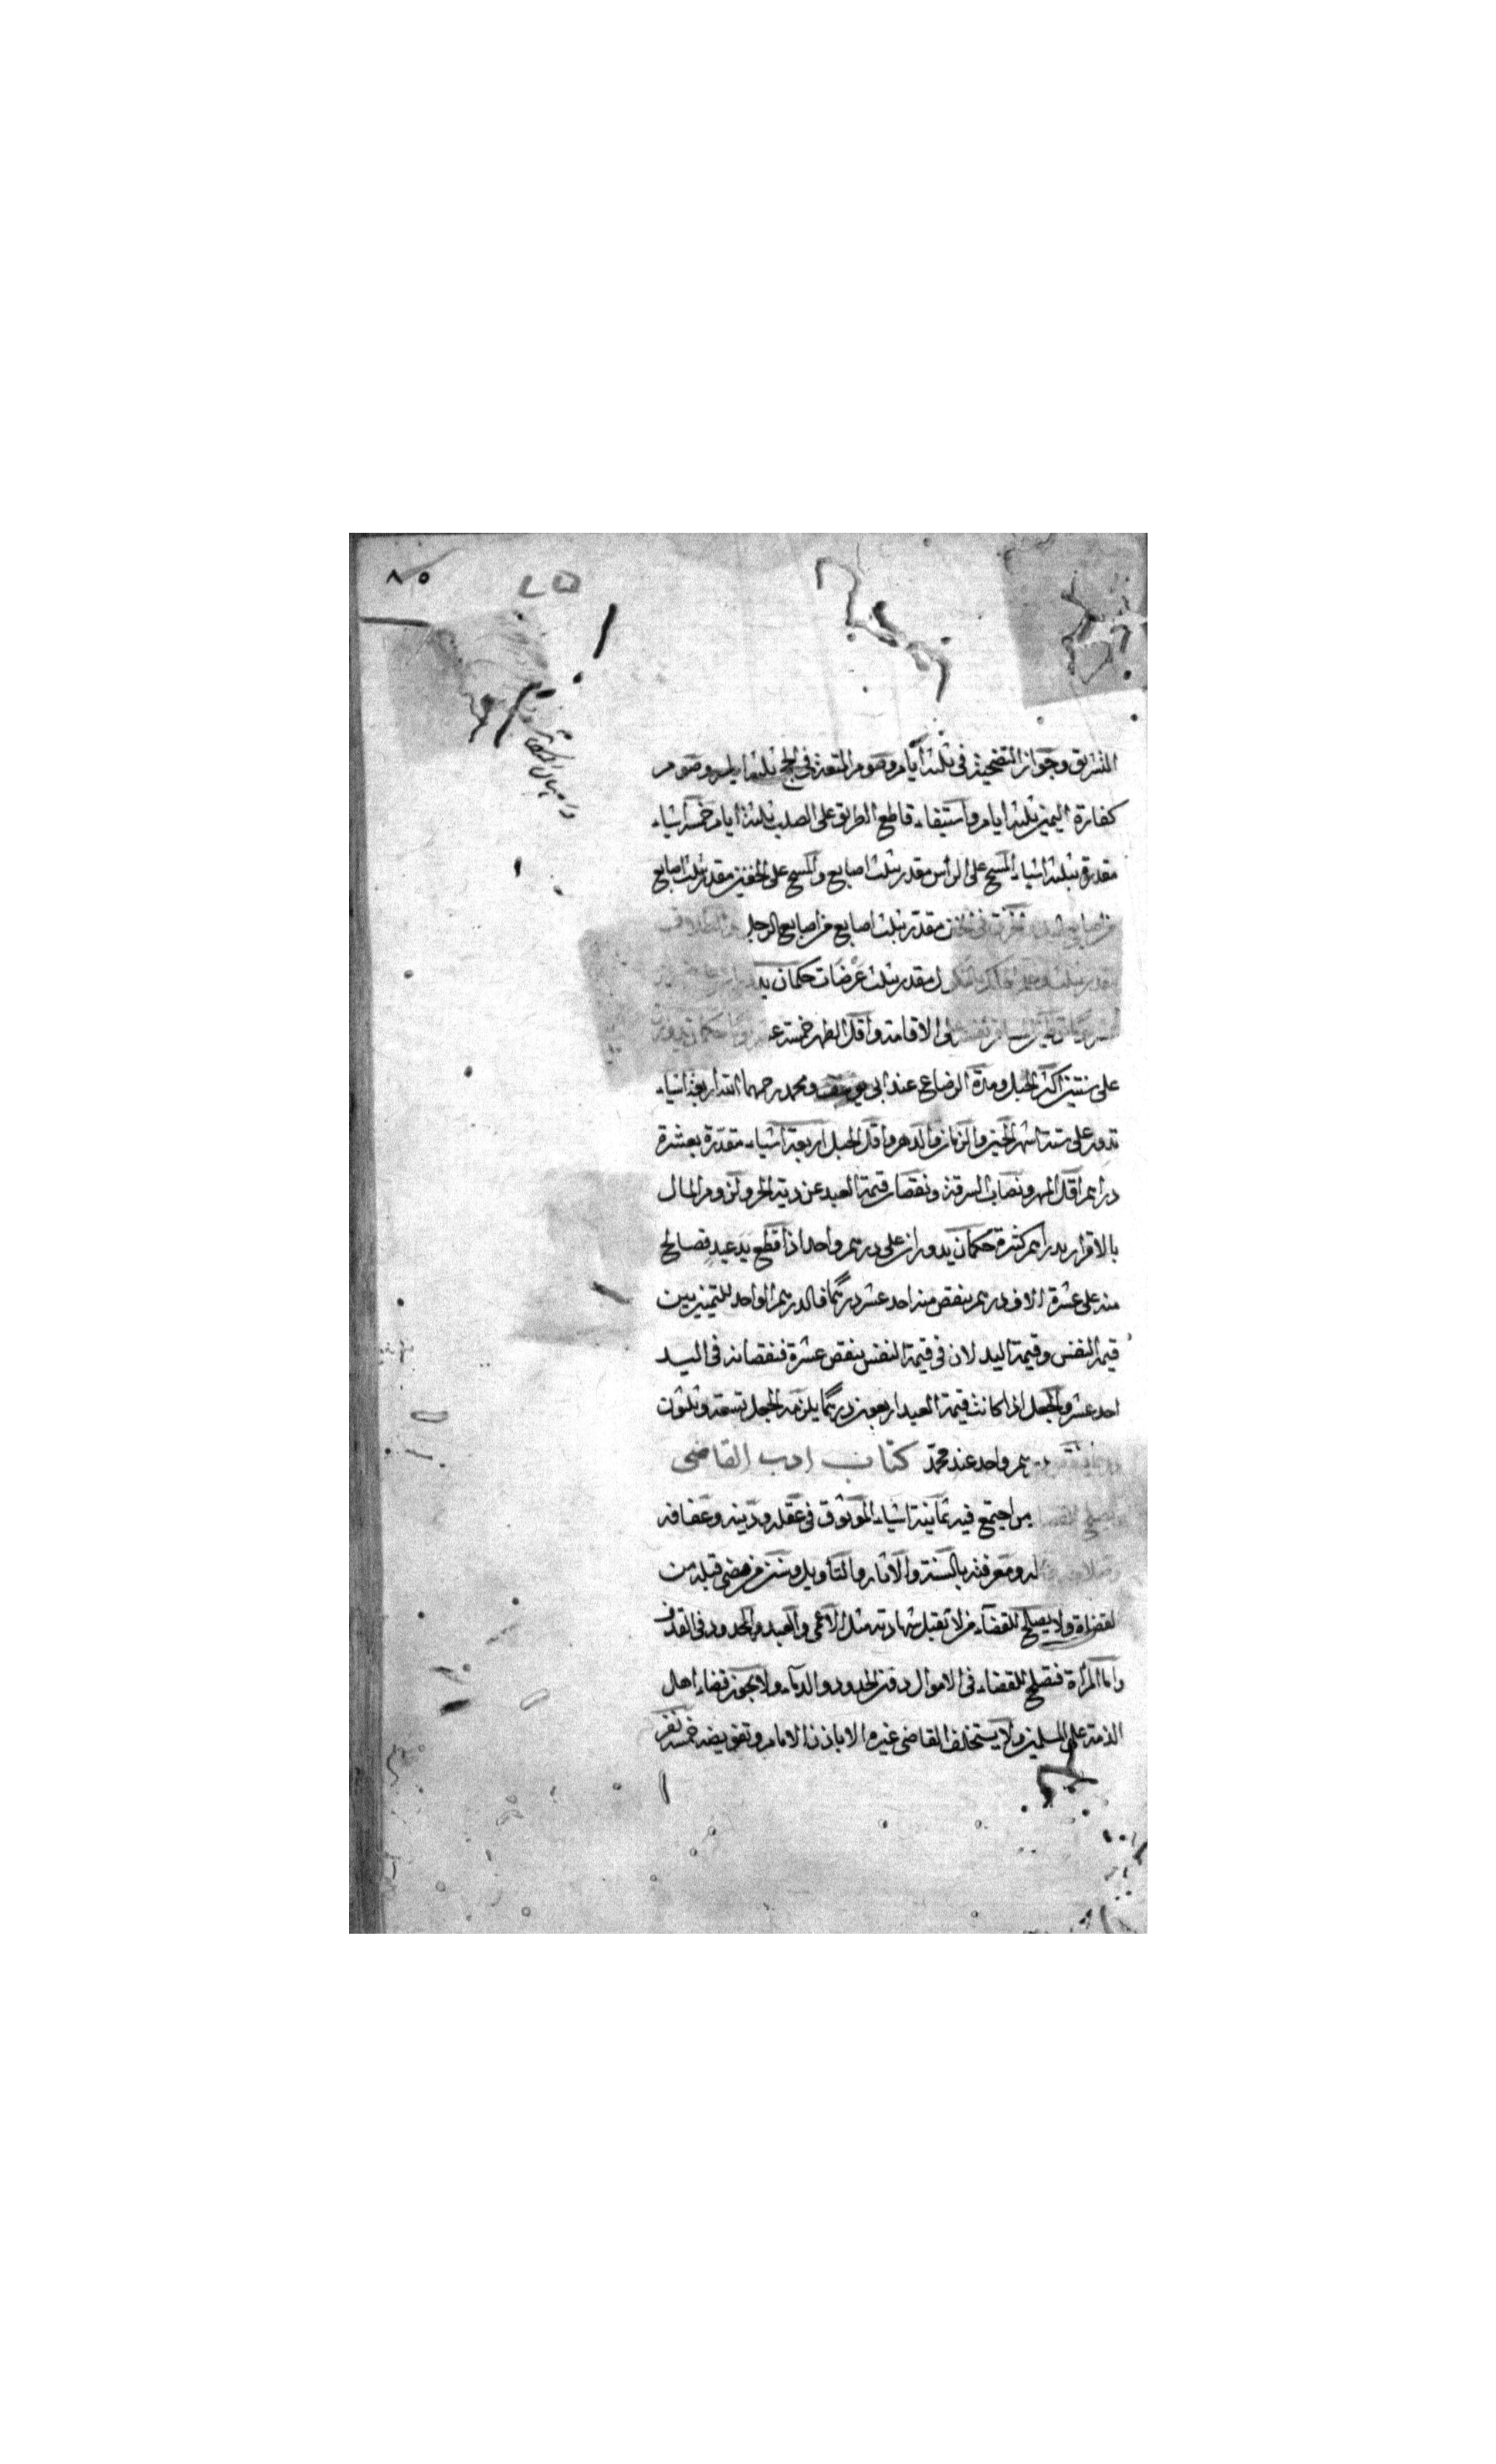 ٨٥
التشريق وجواز التضحية في ثلثة ايام وصوم المتعة في الحج ثلثة ايام وصوم
كفارة اليمين ثلثة ايام واستيفاء قاطع الطريق على الصلب ثلثة ايام خمسة اشياء
مقدرة بثلثة اشياء المسح على الراس مقدر بثلث اصابع والمسح على الخفين مقدر بثلث اصابع
من اصابع اليد مقدر بثلث اصابع من اصابع الرجل
مقدر بثلث عرضات حكمان
الاقامة واقل الطهر خمسة
على سنتين اكثر الحبل ومدة الرضاع عند ابي يوسف ومحمد رحمهما الله اربعة اشياء
تدور على ستة اشهر الحين والزمان والدهر واقل الحبل اربعة اشياء مقدرة بعشرة
دراهم اقل المهر ونصاب السرقة ونقصان قيمة العبد عن دية الحر ولزوم المال
بالاقرار بدراهم كثيرة حكمان يدوران على درهم واحد اذا قطع يد عبد فصالح
منه على عشرة الاف درهم ينقص منه احد عشر درهما فالدرهم الواحد للتمييز بين
قيمة النفس وقيمة اليد لان في قيمة النفس ينقص عشرة فنقصانه في اليد
احد عشر والجعل اذا كانت قيمة العبد اربعين درهما يلزمه الجعل تسعة وثلثون
واحد عند محمد كتاب ادب القاضي
من اجتمع فيه ثمانية اشياء الموثوق في عقله ودينه وعفافه
ومعرفته بالسنة والاثار والتأويل وسنن من مضى قبله من
لقضاة ولا يصلح للقضاء من لا تقبل شهادته مثل الاعمى والعبد والمحدود في القذف
واما المرأة فتصلح للقضاء في الاموال دون الحدود والدماء ولا يجوز قضاء اهل
الذمة على المسلمين ولا يستخلف القاضي غيره الا باذن الامام وتفويضه خمسة نفر